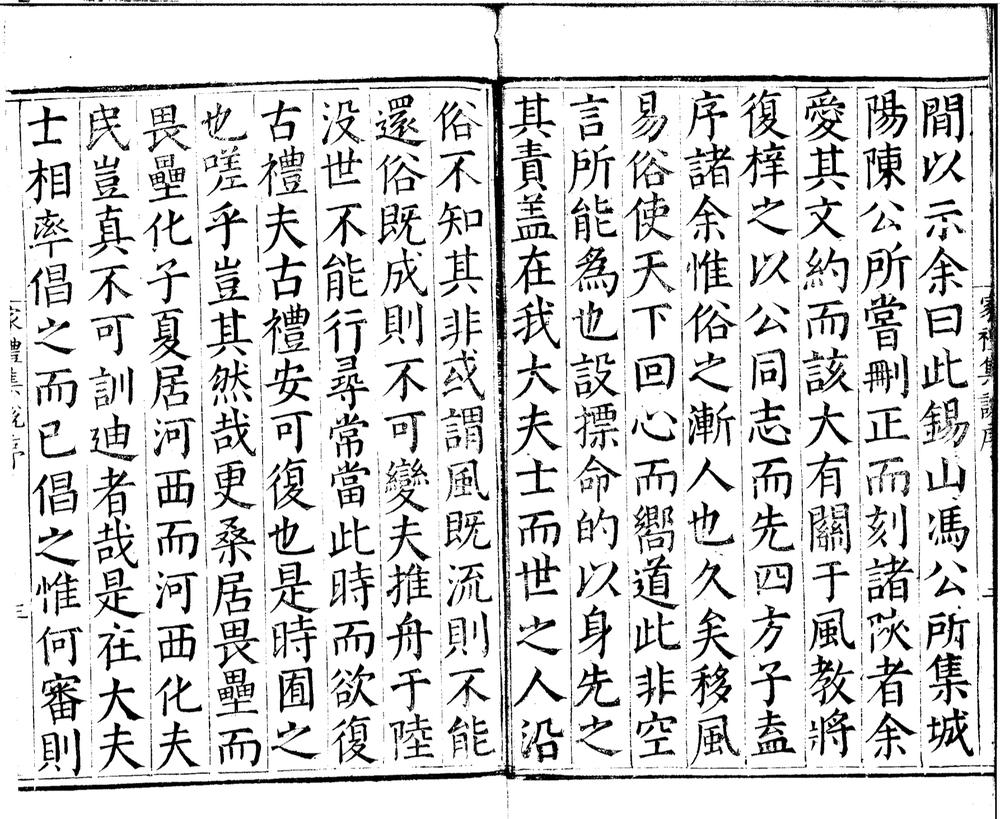 間以示余曰此錫山馮公所集城
陽陳公所嘗刪正而刻諸陝者余
愛其文約而該大有關于風教將
復梓之以公同志而先四方子盍
序諸余惟俗之漸人也久矣移風
易俗使天下回心而嚮道此非空
言所能為也設摽命的以身先之
其責盖在我大夫士而世之人沿
俗不知其非或謂風既流則不能
還俗既成則不可變夫推舟于陸
没世不能行尋常當此時而欲復
古禮夫古禮安可復也是時囿之
也嗟乎豈其然哉更桑居畏壘而
畏壘化子夏居河西而河西化夫
民豈真不可訓迪者哉是在大夫
士相率倡之而已倡之惟何審則
家禮集說序
三